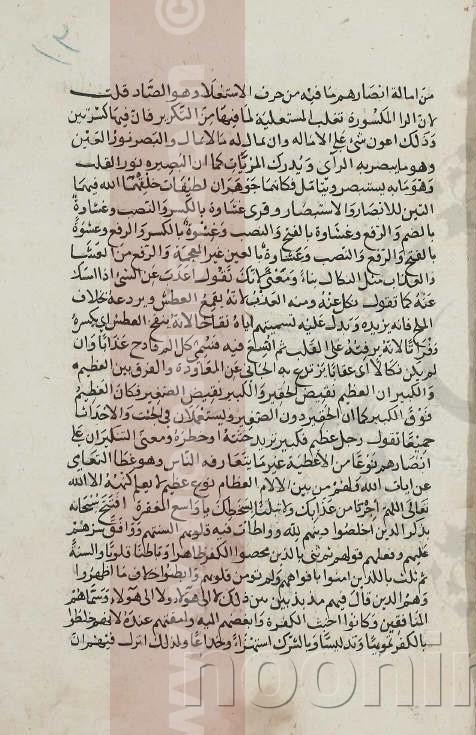 من امالة ابصارهم ما فيه من حرف الاستعلاء وهو الصاد قلت
لان الرا المكسورة تغلب المستعلية لما فيها من التكرير فان فيها كسرتين
وذلك اعون شى على الامالة وان يمال له ما لا يمال والبصر نور العين
وهو ما يبصر به الراى ويدرك المرئيات كما ان البصيره نور القلب
وهو ما به يستبصر ويتامل فكانهما جوهران لطيفان خلقهما الله فيهما
التين للابصار والاستبصار وقرى غشاوة بالكسر والنصب وغشاوة
بالضم والرفع وغشاوة بالفتح والنصب وغشوة بالكسر والرفع وغشوة
بالفتح والرفع والنصب وعشاوة بالعين غير المعجمة والرفع من العشا
والعذاب مثل النكال بناء ومعنى لانك تقول اعذب عن الشى اذا امسك
عنه كما تقول نكل عنه ومنه العذب لانه يقمع العطش ويردعه بخلاف
الملح فانه يزيده ويدل عليه تسميتهم اياه نقاخا لانه ينقخ العطش اى يكسره
وفراتا لانه يرفته على القلب ثم اتسع فيه فسمى كل الم فادح عذابا وان
لم يكن نكالا اى عقابا يرتدع به الجانى عن المعاودة والفرق بين العظيم
والكبير ان العظيم نقيض الحقير والكبير نقيض الصغير فكان العظيم
فوق الكبير كما ان الحقير دون الصغير ويستعملان فى الجثث والاحداث
جميعا تقول رجل عظيم وكبير تريد جثته او خطره ومعنى التنكير ان على
ابصارهم نوعا من الاغطية غير ما يتعارفه الناس وهو غطا التعامى
عن ايات الله ولهم من بين الالام العظام نوع عظيم لا يعلم كنهه الا الله
تعالى اللهم اجرنا من عذابك ولا تبلنا بسخطك يا واسع المغفرة افتتح سبحانه
بذكر الذين اخلصوا دينهم لله وواطات فيه قلوبهم السنتهم ووافق سرهم
علنهم وفعلهم قولهم ثم ثنى بالذين محضوا الكفر ظاهرا وباطنا قلوبا والسنة
ثم ثلث بالذين امنوا بافواههم ولم تومن قلوبهم وابطنوا خلاف ما اظهروا
وهم الذين قال فيهم مذبذبين بين ذلك لا الى هولاء ولا الى هولاء وسماهم
المنافقين وكانوا اخبث الكفرة وابغضهم اليه وامقتهم عنده لانهم خلطوا
بالكفر تمويها وتدليسا وبالشرك استهزاء وخداعا ولذلك انزل فيهم ان
noorin
www.noorin